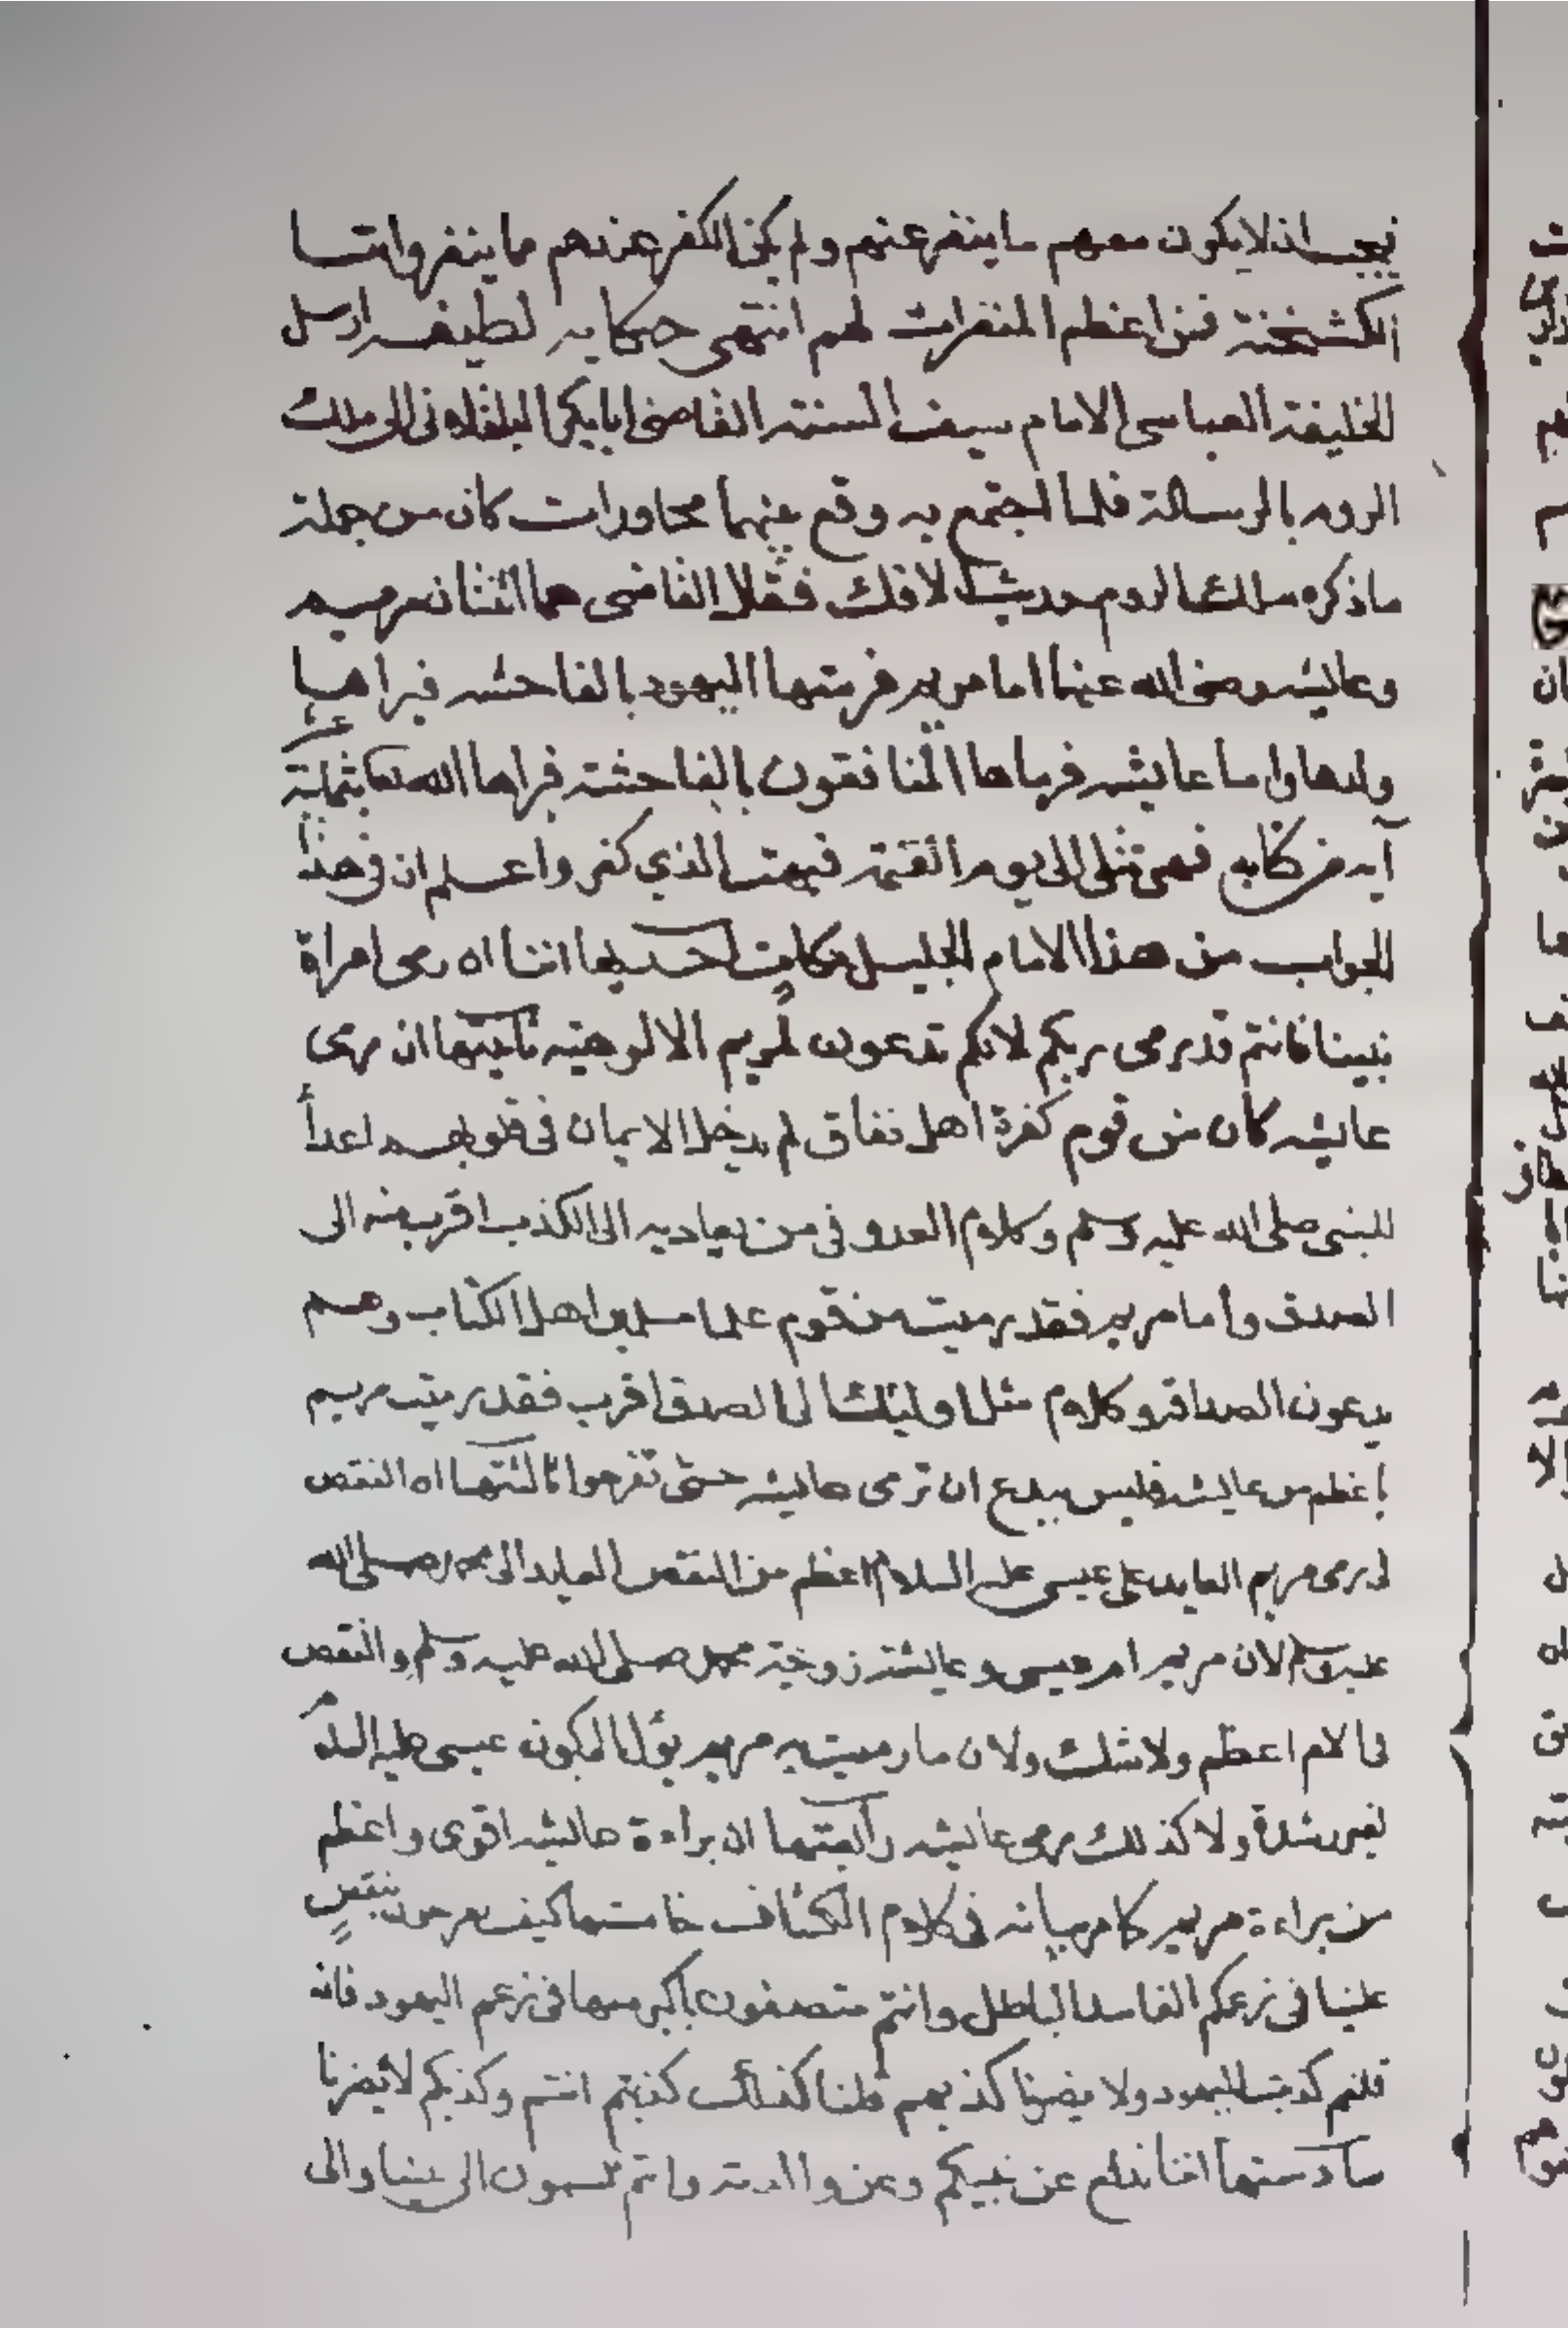 يجب ان لا يكون معهم ما ينفر عنهم ولم يكن الكفر عندهم مما ينفر وانما
الكشخنة فمن اعظم المنفرات لهم انتهى حكايه لطيفه ارسل
الخليفة العباسى الامام سيف السنة القاضى ابا بكر البلقلانى الى ملك
الروم بالرسالة فلما اجتمع به وقع بينهما محاورات كان من جملة
ما ذكره ملك الروم حديث الافك فقال القاضى هما اثنان مريم
وعايشه رضى الله عنهما اما مريم فرمتها اليهود بالفاحشه فبراها
ولدها واما عايشه فرماها المنافقون بالفاحشة فبراها الله تعا بثمانية عشر
آيه من كتابه فهى تتلى الى يوم القيمة فبهت الذي كفر واعلم ان فى هذا
الجواب من هذا الامام الجليل نكات احديها اننا ان رمى امراة
نبينا فانتم قد رمى ربكم لانكم تدعون لمريم الالوهيه ثانيتها ان رمى
عايشه كان من قوم كفرة اهل نفاق لم يدخل الايمان فى قلوبهم اعدأ
للنبى صلى الله عليه وسلم وكلام العدو فى من يعاديه الى الكذب اقرب منه الى
الصدق وأما مريم فقد رميت من قوم علما مسلمين اهل الكتاب وهم
يدعون الصداقه وكلام مثل اوليك الى الصدق اقرب فقد رميت مريم
باعظم من عايشه فليس ببدع ان ترمى عايشه حتى تفرحوا ثالثتها ان النقص
فى رمى مريم العايد على عيسى عليه السلام اعظم من النقص العايد الى محمد صلى الله
عليه وسلم لان مريم ام عيسى وعايشة زوجة محمد صلى الله عليه وسلم والنقص
فى الام اعظم ولا شك ولان ما رميت به مريم يؤل الى كون عيسى عليه السلام
لغير رشدة ولا كذلك رمى عايشه رابعتها ان براءة عايشه اقوى واعظم
من براءة مريم كما مر بيانه فى كلام الكشاف خامستها كيف تفرحون بنقص
علينا فى زعمكم الفاسد الباطل وانتم متصفون باكبر منها فى زعم اليهود فان
قلتم كذبت اليهود ولا يضرنا كذبهم قلنا كذلك كذبتم انتم وكذبكم لا يضرنا
سادستها اننا ندفع عن نبيكم وعن والدته وانتم تسبون الى نبينا والى